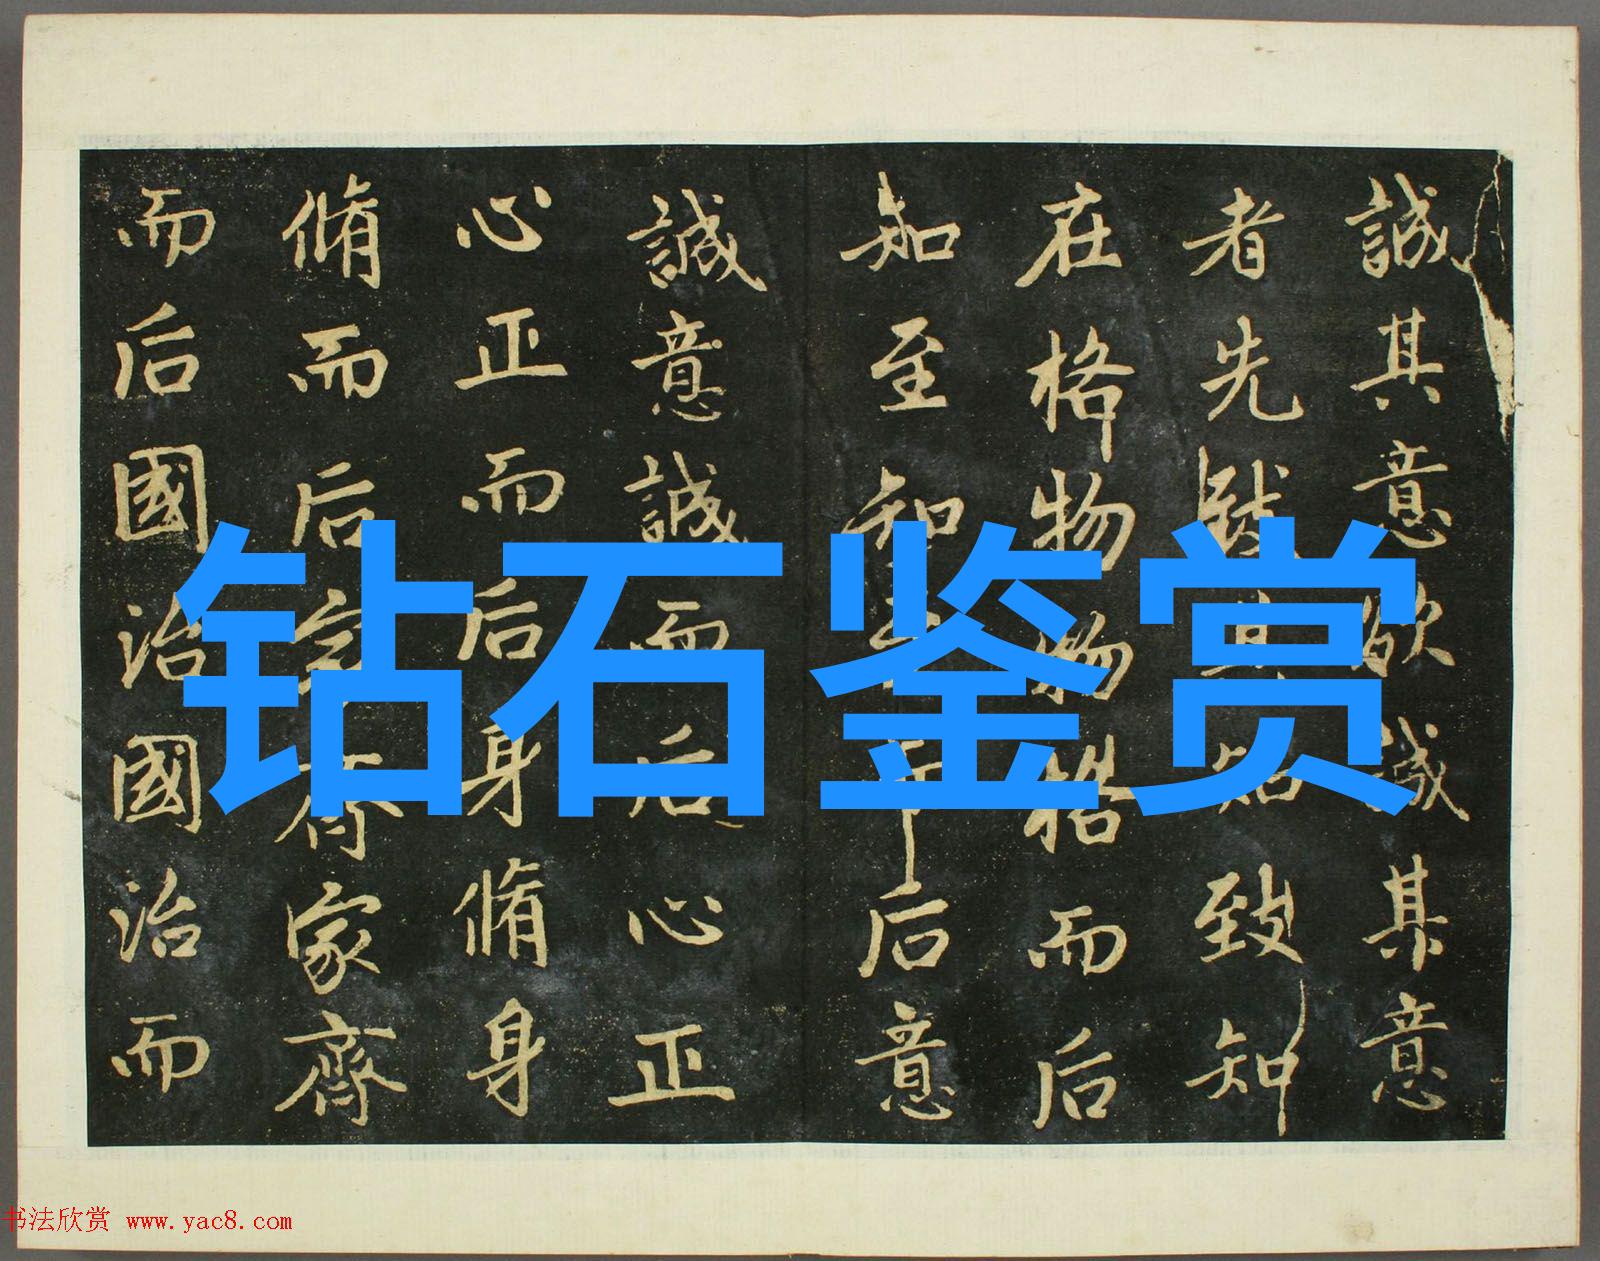 誠其意欲誠其意
者先致其知致知
在格物物格而后
知至知至而后意
誠意誠而后心正
心正而后身脩身
脩而后家齊家齊
而后國治國治而
钻石鉴赏
书法欣赏 www.yac8.com